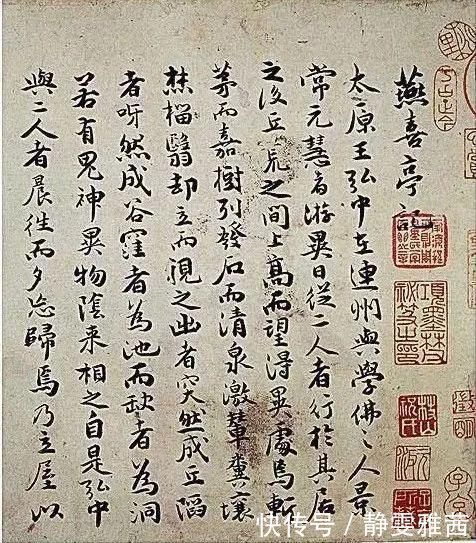 燕喜亭記
太原王弘中在連州與學佛之人景
常元慧者游異日從二人者行於其居
之後丘荒之間上高而望得異處焉斬
茅而嘉樹列發石而清泉激輦糞壤
焚榴翳却立而視之出者突然成丘陷
者呀然成谷窪者為池而缺者為洞
若有鬼神異物陰来相之自是弘中
與二人者晨往而夕忘歸焉乃立屋以
項墨林祕笈之印
快传号 / 静雯雅茜